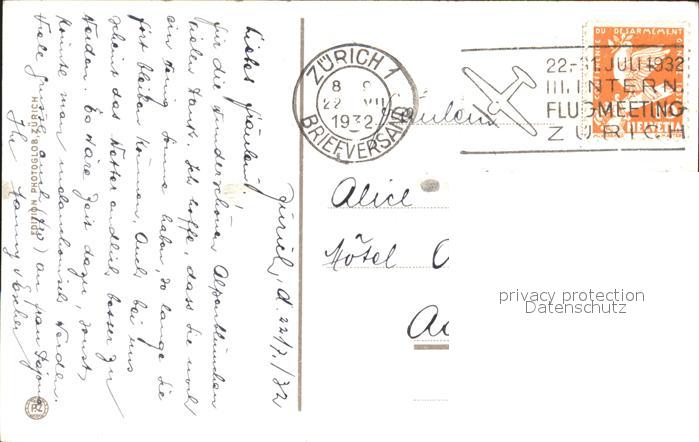 Zürich, d. 22./7./32
Liebes Fräulein!
für die wunderschönen Alpenblümchen
vielen Dank. Ich hoffe, dass Sie noch
ein wenig Sonne haben, so lange Sie
fort bleiben können. Auch bei uns
scheint das Wetter endlich besser zu
werden. Es wäre Zeit dazu, sonst
könnte man melancholisch werden.
Viele Grüsse auch an Frau
Ihr
EDITION PHOTOGLOB, ZÜRICH
PZ
ZÜRICH 1
22. VII
1932
BRIEFVERSAND
22.-31. JULI 1932
III. INTERN.
FLUGMEETING
ZÜRICH
DU DESARMEMENT
HELVETIA
Fräulein
Alice
Hôtel
privacy protection
Datenschutz